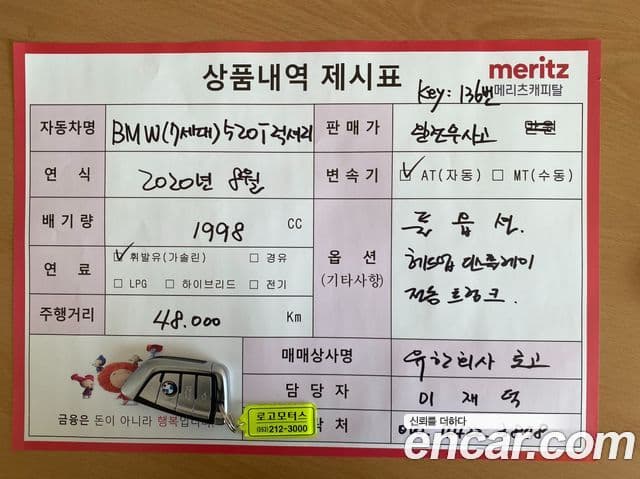 상품내역 제시표
meritz
메리츠캐피탈
Key: 136번
자동차명 BMW(7세대) 520i 럭셔리
판매가 완전무사고 만원
연식 2020년 8월
변속기 AT(자동) MT(수동)
배기량 1998 CC
연료 휘발유(가솔린) 경유
LPG 하이브리드 전기
옵션 (기타사항)
풀 옵션.
헤드업 디스플레이
전동 트렁크.
주행거리 48.000 Km
매매상사명 유한회사 로고
담당자 이재덕
금융은 돈이 아니라 행복입니다
로고모터스
(063)212-3000
신뢰를 더하다
encar.com